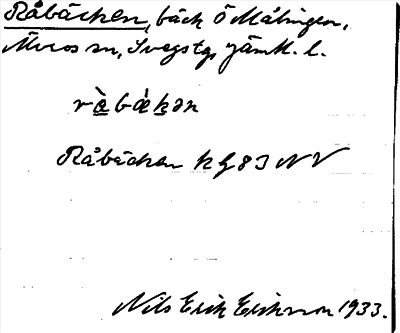 Råbäcken, bäck Ö Målingen,
Älvros sn, Svegs tg, Jämtl. l.
Råbäcken k G83 NV
Nils Erik Eriksson 1933.